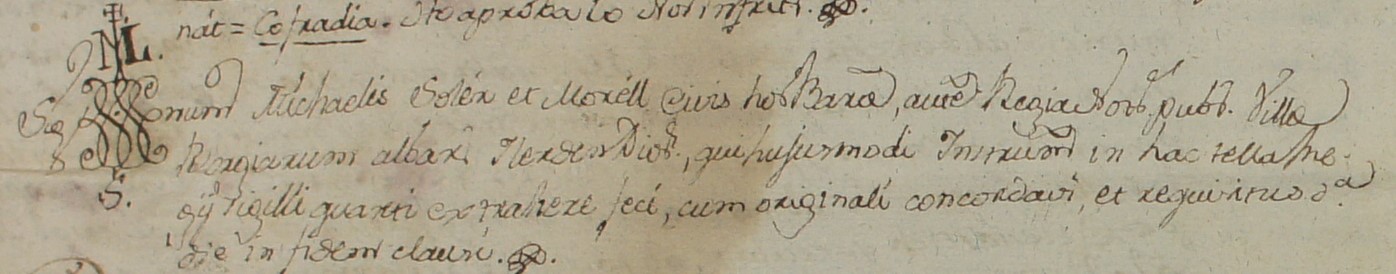 nát = Cofradia. Ite aproba lo Not infrit.
M L.
Sig num Michaelis Solér et Moréll Civis hos Barnæ, aucte Regia Nots. pubs. Villæ
Borgiarum albar. Ilerden Dios., qui hujusmodi Instrum in hac tella Re-
gij sigilli quarti extrahere feci, cum originali concordavi, et requisitus d.ª
S.
die in fidem clausi.